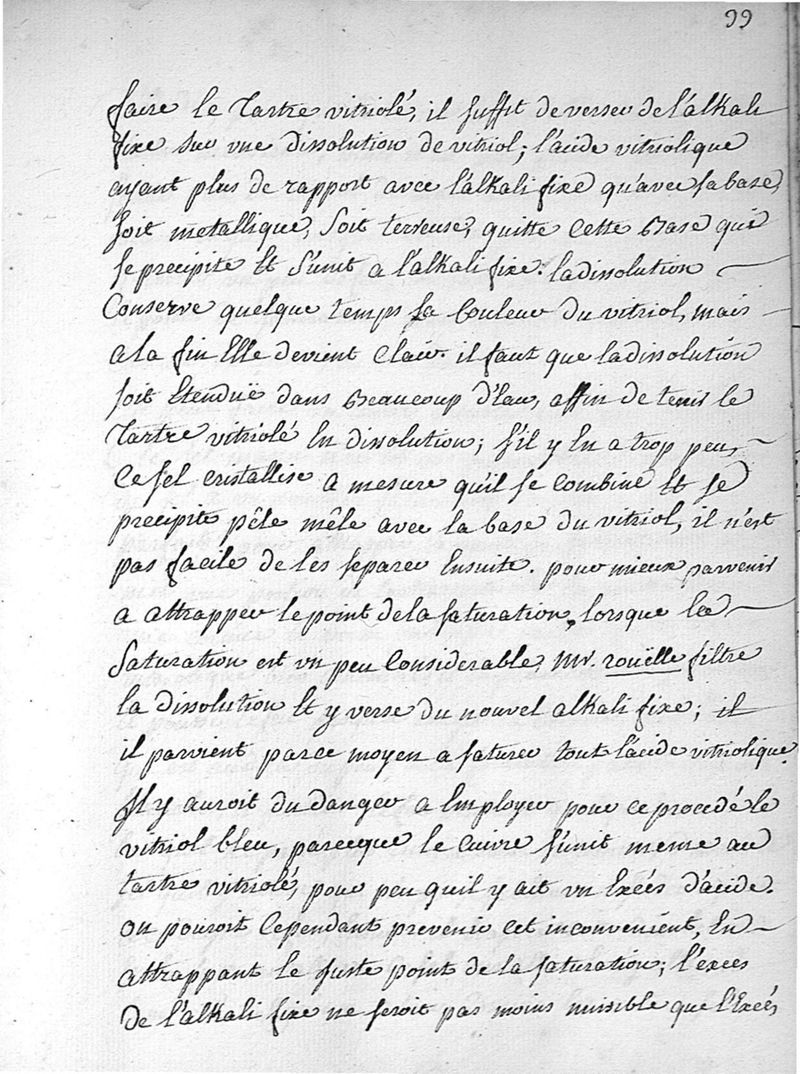 99
faire le Tartre vitriolé, il suffit de verser de l'alkali
fixe sur une dissolution de vitriol; l'acide vitriolique
ayant plus de rapport avec l'alkali fixe qu'avec sa base,
soit metallique, soit terreuse, quitte cette Base qui
se precipite Et s'unit a l'alkali fixe. la dissolution
Conserve quelque temps sa Couleur du vitriol, mais
a la fin Elle devient Clair. il faut que la dissolution
soit Etenduë dans Beaucoup d'Eau, affin de tenir le
Tartre vitriolé En dissolution; s'il y En a trop peu,
Ce sel cristallise a mesure qu'il se Combine Et se
precipite pêle mêle avec la base du vitriol, il n'est
pas facile de les separer Ensuite. pour mieux parvenir
a attrapper le point de la saturation, lorsque la
Saturation est un peu Considerable, Mr. rouëlle filtre
la dissolution Et y verse du nouvel alkali fixe; il
il parvient par ce moyen a saturer tout l'acide vitriolique.
Il y auroit du danger a Employer pour ce procedé le
vitriol bleu, parceque le Cuivre s'unit meme au
tartre vitriolé, pour peu qu'il y ait un Excés d'acide.
on pouroit Cependant prevenir cet inconvenient, En
attrappant le juste point de la saturation; l'exces
de l'alkali fixe ne seroit pas moins nuisible que l'Excés